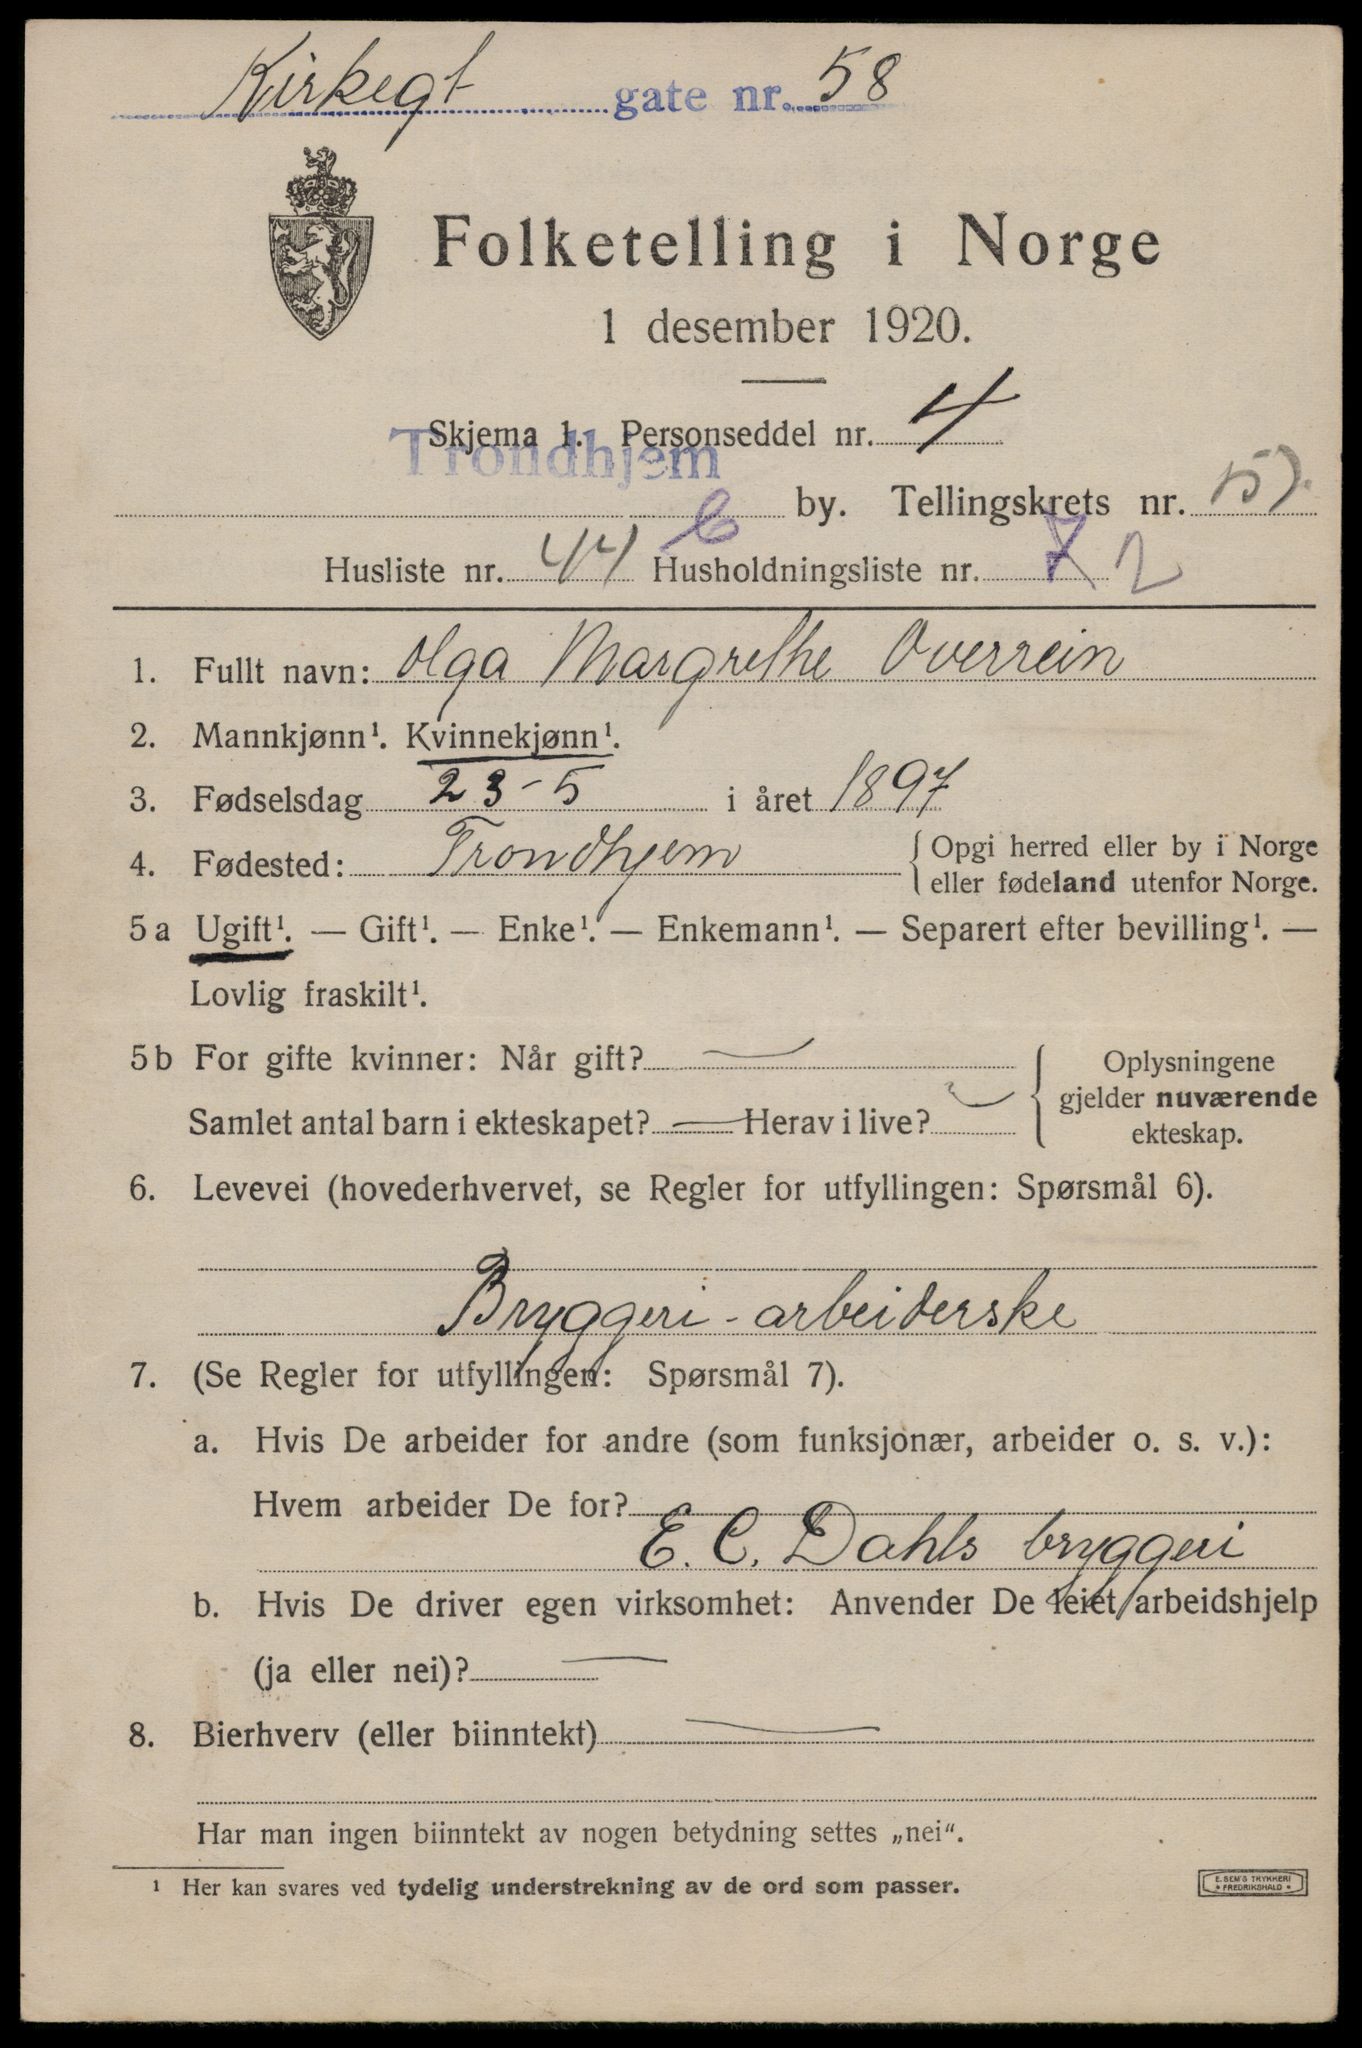 Kirkegt gate nr. 58
Folketelling i Norge
1 desember 1920.
Skjema 1. Personseddel nr. 4
Trondhjem
by. Tellingskrets nr.
Husliste nr. 44 Husholdningsliste nr. 2
1. Fullt navn: Olga Margrethe Overrein
2. Mannkjønn¹. Kvinnekjønn¹.
3. Fødselsdag 23-5 i året 1897
4. Fødested: Trondhjem { Opgi herred eller by i Norge
eller fødeland utenfor Norge.
5a Ugift¹. — Gift¹. — Enke¹. — Enkemann¹. — Separert efter bevilling¹. —
Lovlig fraskilt¹.
5b For gifte kvinner: Når gift? —
Samlet antal barn i ekteskapet? — Herav i live?
Oplysningene
gjelder nuværende
ekteskap.
6. Levevei (hovederhvervet, se Regler for utfyllingen: Spørsmål 6).
Bryggeri-arbeiderske
7. (Se Regler for utfyllingen: Spørsmål 7).
a. Hvis De arbeider for andre (som funksjonær, arbeider o. s. v.):
Hvem arbeider De for?
E. C. Dahls bryggeri
b. Hvis De driver egen virksomhet: Anvender De leiet arbeidshjelp
(ja eller nei)? —
8. Bierhverv (eller biinntekt) —
Har man ingen biinntekt av nogen betydning settes „nei“.
¹ Her kan svares ved tydelig understrekning av de ord som passer.
E. SEM'S TRYKKERI
* FREDRIKSHALD *